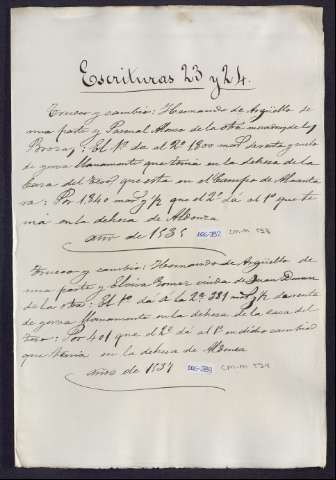 Escrituras 23 y 24.
Trueco y cambio: Hernando de Argüello de
una parte y Pascual Alonso de la otra moradores de las
Brozas: El 1º da al 2º 1300 mas de renta y suelo
de yerva llanamente que tenia en la dehesa de la
Casa del que esta en el Campo de Alcanta
ra: Por 1340 mas y ½ que el 2º dá al 1º que te
nia en la dehesa de Aldonza
año de 1535
CM-M 538
Trueco y cambio: Hernando de Argüello de
una parte y Elvira Gomez viuda de Juan Duran
de la otra: El 1º da á la 2ª 381 mas y ½ de renta
de yerva llanamente en la dehesa de la casa del
Por 401 que el 2º dá al 1º en dicho cambio
que tenia en la dehesa de Aldonza
años de 1534
CM-M 539